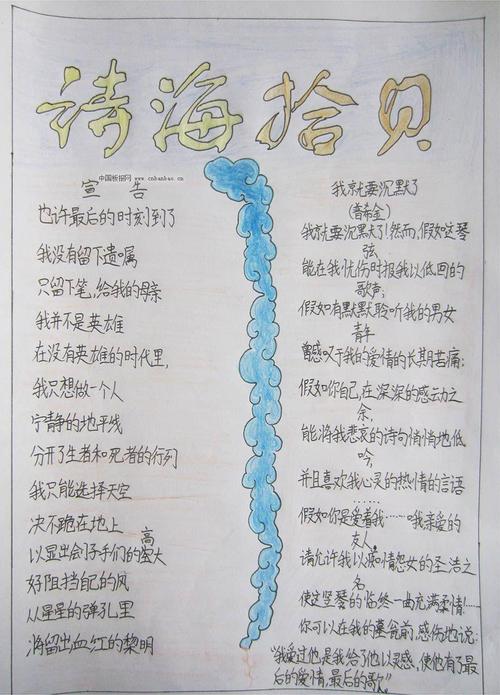 诗海拾贝
中国板报网 www.cnbanbao.cn
宣告
也许最后的时刻到了
我没有留下遗嘱
只留下笔,给我的母亲
我并不是英雄
在没有英雄的时代里,
我只想做一个人
宁静的地平线
分开了生者和死者的行列
我只能选择天空
决不跪在地上
以显出刽子手们的高大
好阻挡自己的风
从星星的弹孔里
将留出血红的黎明
我就要沉默了
(普希金)
我就要沉默了!然而,假如这琴
弦,
能在我忧伤时报我以低回的
歌声;
假如有默默聆听我的男女
青年
曾感叹于我的爱情的长期苦痛;
假如你自己,在深深的感动之
余,
能将我悲哀的诗句悄悄地低
吟,
并且喜欢我心灵的热情的言语
……
假如你是爱着我……哦我亲爱的
友人,
请允许我以痴情怨女的圣洁之
名
使这竖琴的临终一曲充满柔情!……
你可以在我的墓瓮前,感伤地说:
"我爱过他是我给了他以灵感,使他有了最
后的爱情,最后的歌"